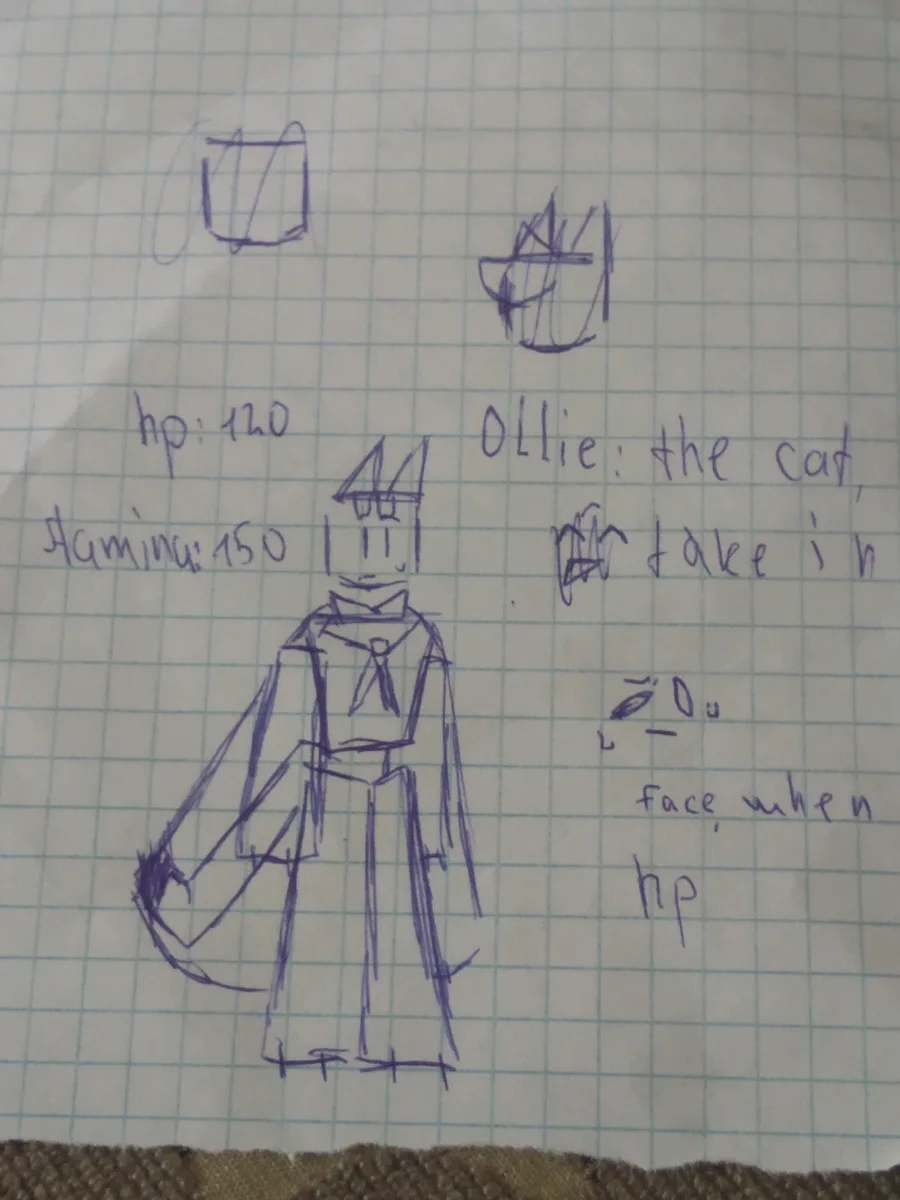 hp: 120
Ollie: the cat,
Stamina: 150
take in
face, when
hp